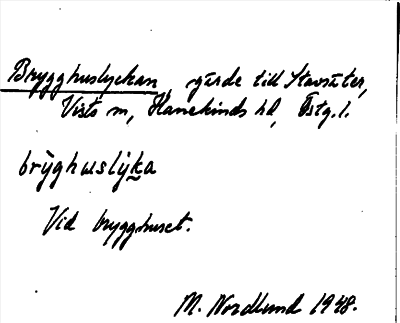 Brygghuslyckan, gärde till Stavsäter,
Vists sn, Hanekinds hd, Östg. l.
brỳghuslỳka
Vid brygghuset.
M. Nordlund 1948.